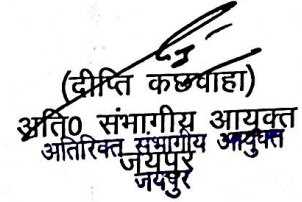 (दीप्ति कछवाहा)
अति0 संभागीय आयुक्त
अतिरिक्त संभागीय आयुक्त
जयपुर
जयपुर